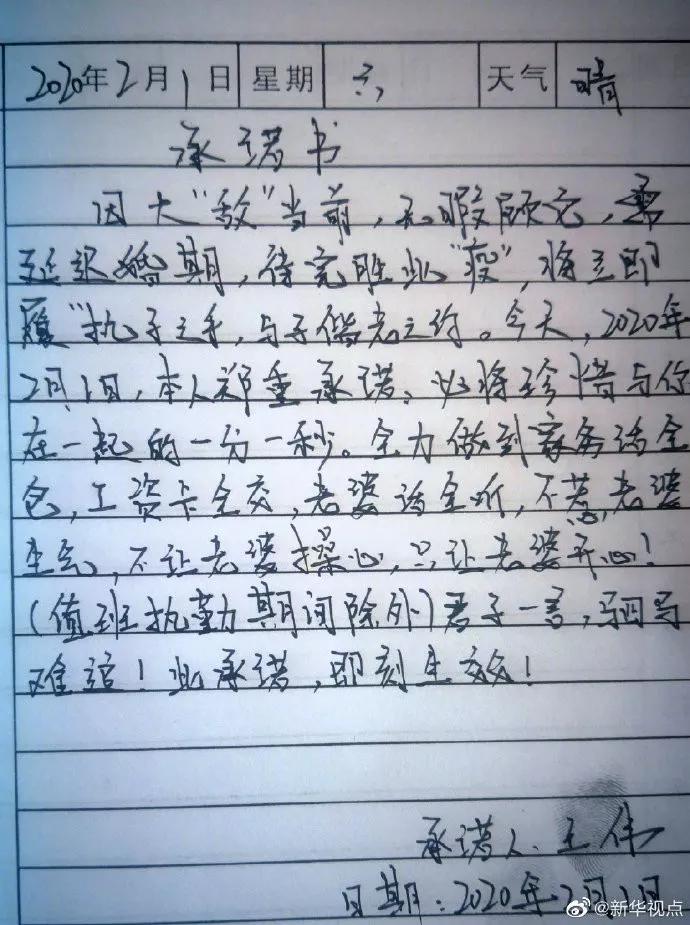 2020年2月1日 星期六 天气 晴
承诺书
因大“敌”当前，无暇顾它，需
延迟婚期，待完胜此“疫”，将立即
履“执子之手，与子偕老之约。今天，2020年
2月1日，本人郑重承诺：必将珍惜与你
在一起的一分一秒。全力做到家务活全
包，工资卡全交，老婆话全听，不惹老婆
生气，不让老婆操心，只让老婆开心！
（值班执勤期间除外）君子一言，驷马
难追！此承诺，即刻生效！
承诺人：王伟
日期：2020年2月1日
@新华视点